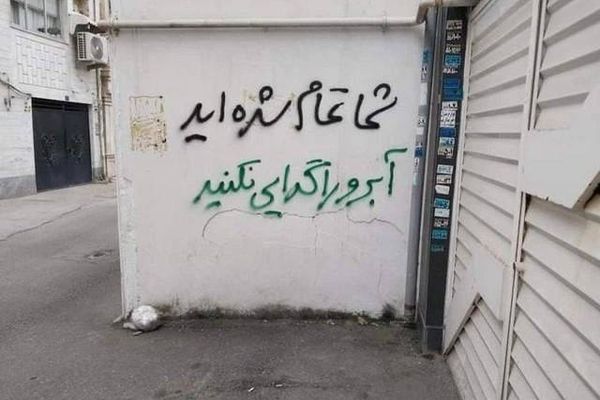 شما تمام شده اید
آبرو را گدایی نکنید